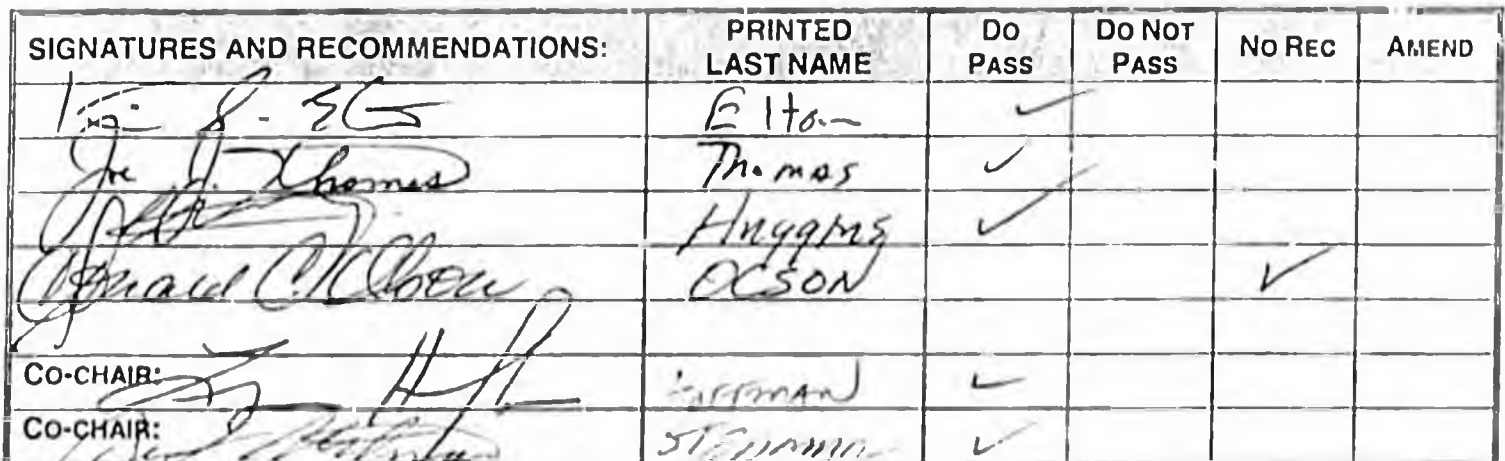 SIGNATURES AND RECOMMENDATIONS: PRINTED LAST NAME DO PASS DO NOT PASS NO REC AMEND
Elton ✓
Joe J. Thomas Thomas ✓
Huggins ✓
Donald C. Olson OLSON ✓
CO-CHAIR: HOFFMAN ✓
CO-CHAIR: ✓